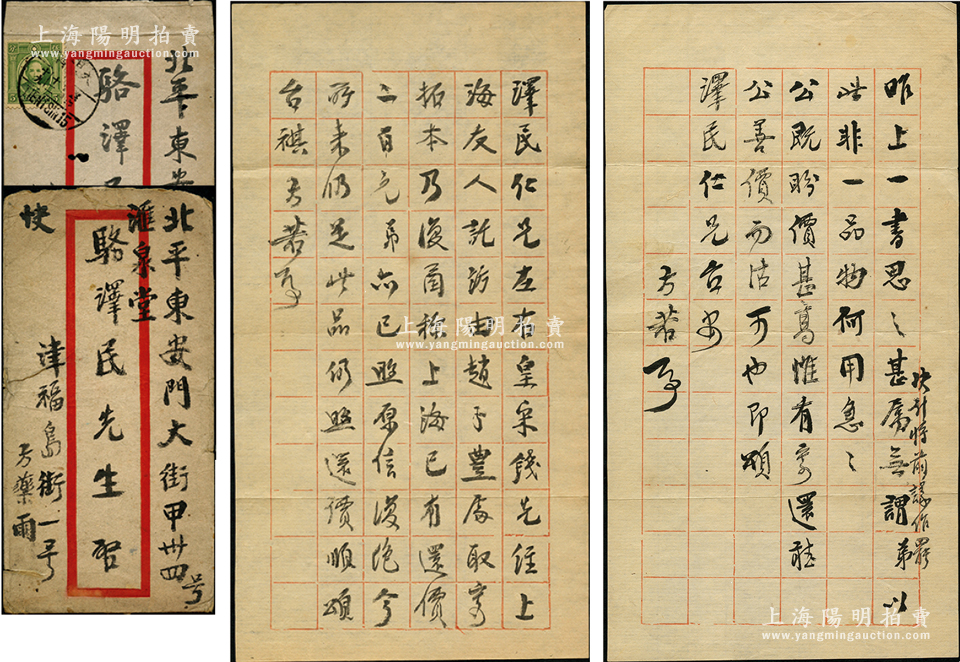 上海陽明拍賣
www.yangmingauction.com
北平東安
駱澤
北平東安門大街甲卅四号
滙泉堂
駱澤民先生
快
津福島街一号
方藥雨
上海陽明拍賣
www.yangmingauction.com
澤民仁兄左右皇宋錢先經上
海友人託訪由趙子豐處取寄
拓本乃復函称上海已有還價
二百元弟亦已照原信復絶今
所来仍是此品仍照還價順頌
台祺方若頓
上海陽明拍賣
www.yangmingauction.com
快引将前議作罷
昨上一書思之甚屬無謂弟以
此非一品物何用急急
公既盼價甚高惟有寄還聽
公善價而沽可也即頌
澤民仁兄台安
方若頓
上海陽明拍賣
www.yangmingauction.com